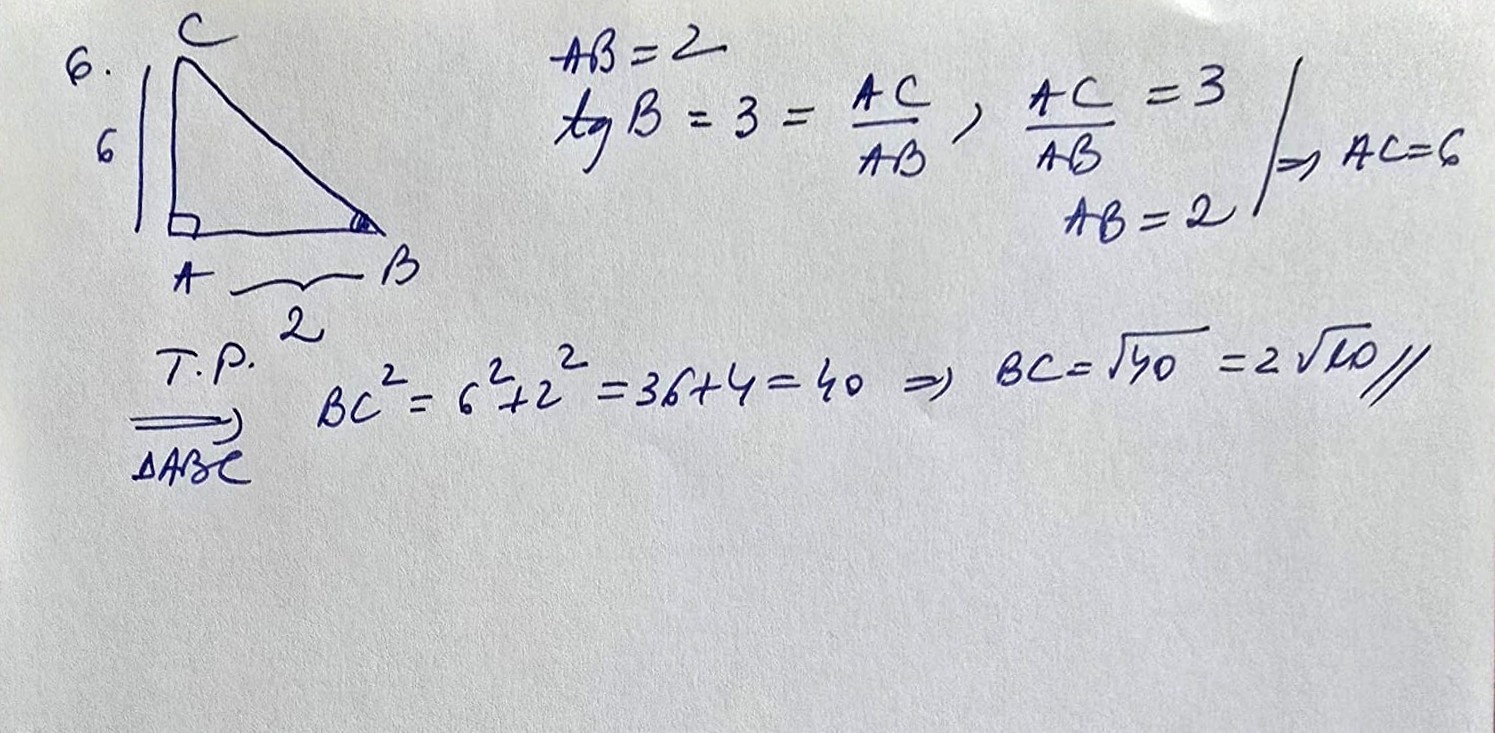 6.
C
6
A
B
2
AB = 2
tg B = 3 = AC/AB , AC/AB = 3
AB = 2
⇒ AC = 6
T.P.
⇒
ΔABC
BC² = 6² + 2² = 36 + 4 = 40 ⇒ BC = √40 = 2√10 //